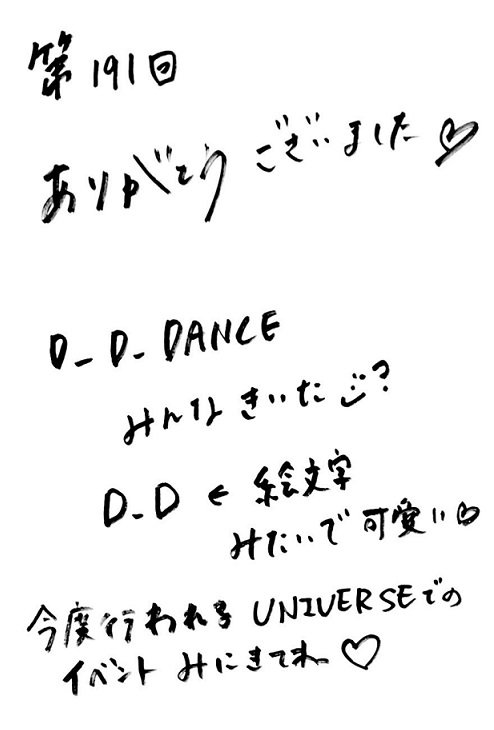 第191回
ありがとう ございました♡
D_D_DANCE
みんな きいた ツ?
D_D ← 絵文字
みたいで 可愛い♡
今度行われる UNIVERSEでの
イベント みにきてネ♡